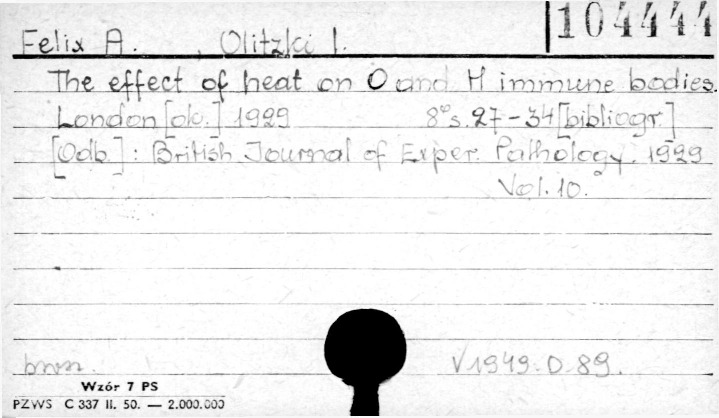 104444
Felix A. , Olitzki I.
The effect of heat on O and H immune bodies.
London [ok.] 1929 8° s. 27-34 [bibliogr.]
[Odb.] : British Journal of Exper. Pathology. 1929
Vol. 10.
V 1949. D. 89.
Wzór 7 PS
PZWS C 337 II. 50. — 2.000.000